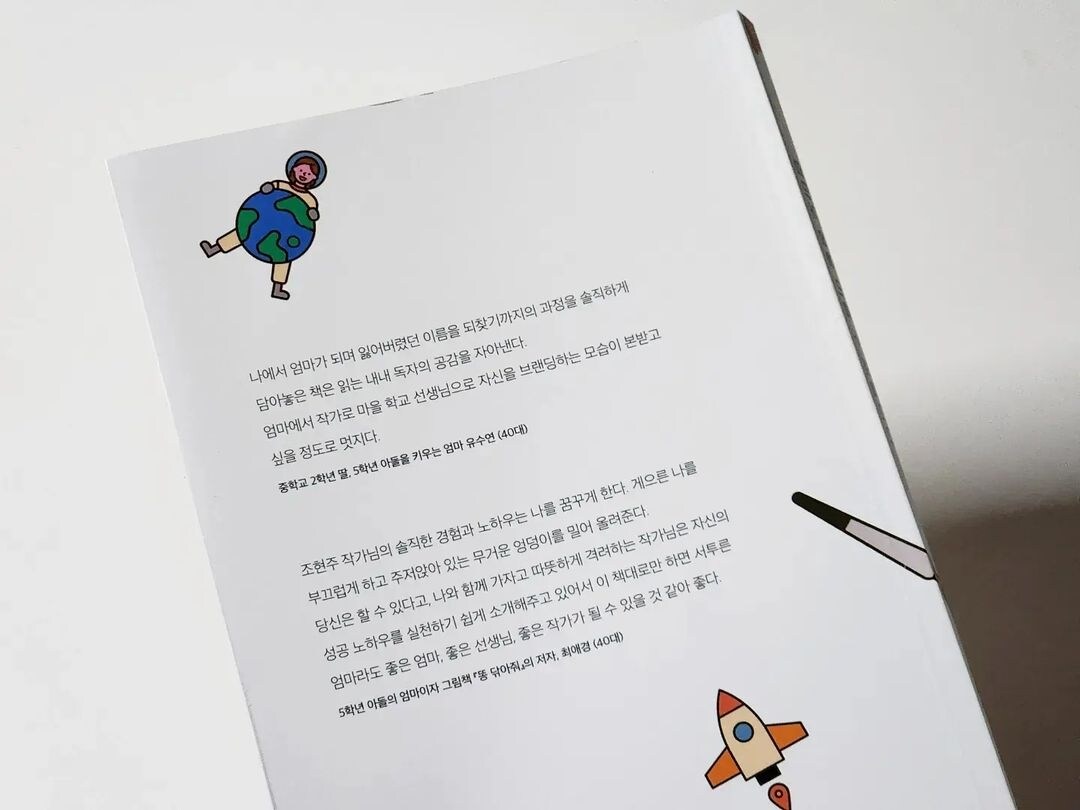 나에서 엄마가 되며 잃어버렸던 이름을 되찾기까지의 과정을 솔직하게
담아놓은 책은 읽는 내내 독자의 공감을 자아낸다.
엄마에서 작가로 마을 학교 선생님으로 자신을 브랜딩하는 모습이 본받고
싶을 정도로 멋지다.
중학교 2학년 딸, 5학년 아들을 키우는 엄마 유수연 (40대)
조현주 작가님의 솔직한 경험과 노하우는 나를 꿈꾸게 한다. 게으른 나를
부끄럽게 하고 주저앉아 있는 무거운 엉덩이를 밀어 올려준다.
당신은 할 수 있다고, 나와 함께 가자고 따뜻하게 격려하는 작가님은 자신의
성공 노하우를 실천하기 쉽게 소개해주고 있어서 이 책대로만 하면 서투른
엄마라도 좋은 엄마, 좋은 선생님, 좋은 작가가 될 수 있을 것 같아 좋다.
5학년 아들의 엄마이자 그림책 『똥 닦아줘』의 저자, 최애경 (40대)